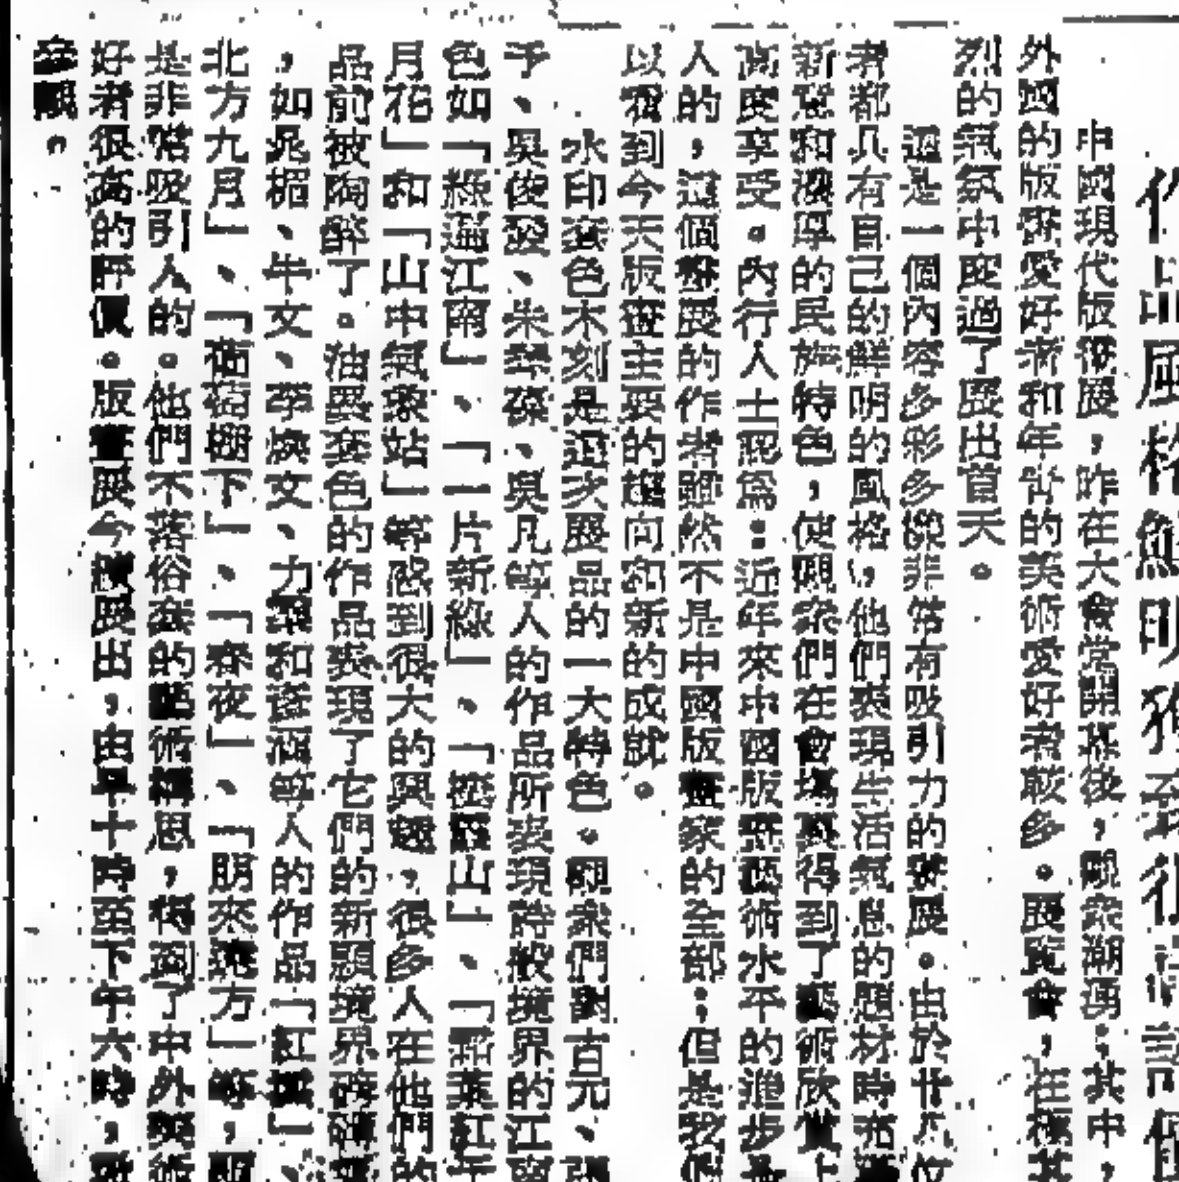 作品風格鮮明獨到
中國現代版畫展，昨在大會堂開幕後，觀衆潮湧；其中，
外國的版畫愛好者和年靑的美術愛好者較多。展覽會，在極其
烈的氣氛中度過了展出首天。
這是一個內容多彩多姿非常有吸引力的畫展。由於廿八位
者都具有自己的鮮明的風格，他們表現生活氣息的題材時充滿
新意和濃厚的民族特色，使觀衆們在會場裏得到了藝術欣賞上
高度享受。內行人士認爲：近年來中國版畫藝術水平的進步
人的，這個畫展的作者雖然不是中國版畫家的全部；但是我們
以看到今天版畫主要的趨向和新的成就。
水印套色木刻是這次展品的一大特色。觀衆們對古元、張
予、吳俊發、朱琴葆、吳凡等人的作品所表現詩般境界的江南
色如「綠遍江南」、「一片新綠」、「山」、「霜葉紅
月花」和「山中氣象站」等感到很大的興趣，很多人在他們的
品前被陶醉了。油墨套色的作品表現了它們的新題境界
，如晁楣、牛文、李煥文、力羣和等人的作品「紅」、
北方九月」、「葡萄棚下」、「春夜」、「朋來遠方」等，
是非常吸引人的。他們不落俗套的藝術構思，得到了中外美術
好者很高的評價。版畫展今續展出，由早十時至下午六時，歡
參觀。